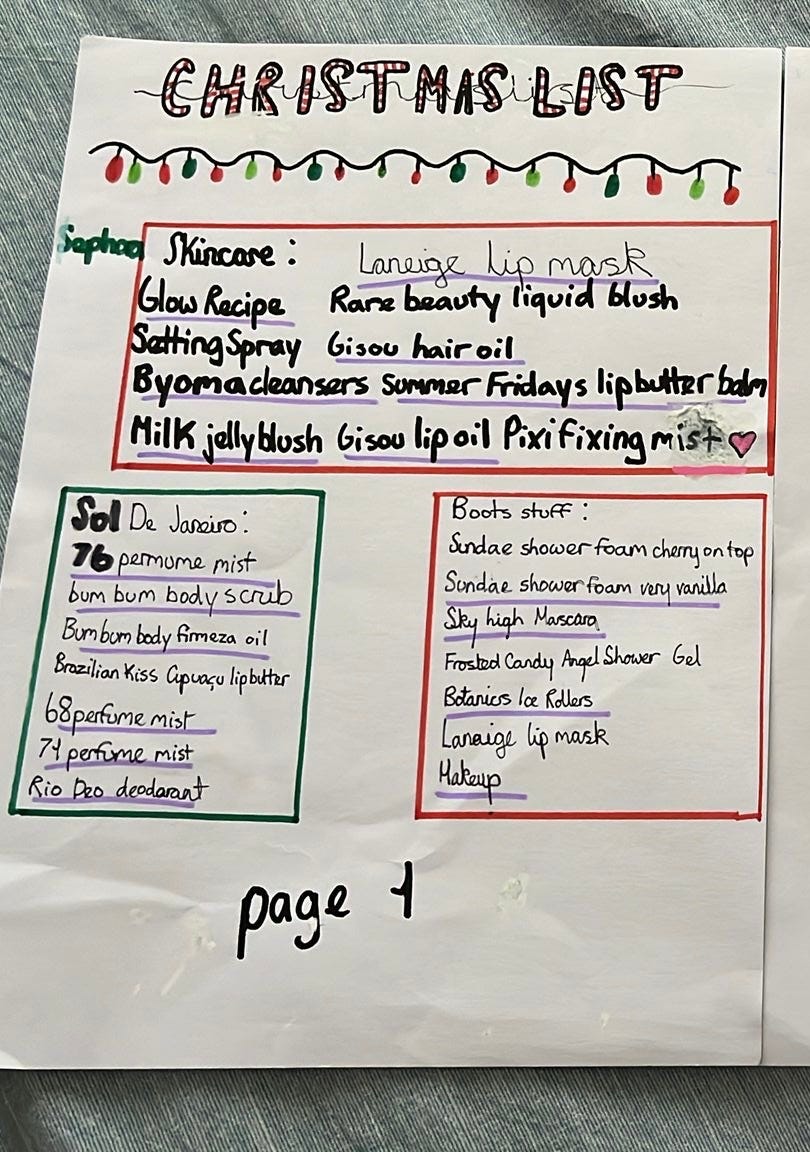 CHRISTMAS LIST
Sephoa
Skincare : Laneige lip mask
Glow Recipe Rare beauty liquid blush
Setting Spray Gisou hair oil
Byoma cleansers Summer Fridays lip butter balm
Milk jelly blush Gisou lip oil Pixi fixing mist
Sol De Janeiro:
76 permume mist
bum bum body scrub
Bum bum body firmeza oil
Brazilian Kiss Cupuaçu lip butter
68 perfume mist
71 perfume mist
Rio Deo deodarant
Boots stuff :
Sundae shower foam cherry on top
Sundae shower foam very vanilla
Sky high Mascara
Frosted Candy Angel Shower Gel
Botanics Ice Rollers
Laneige lip mask
Makeup
page 1